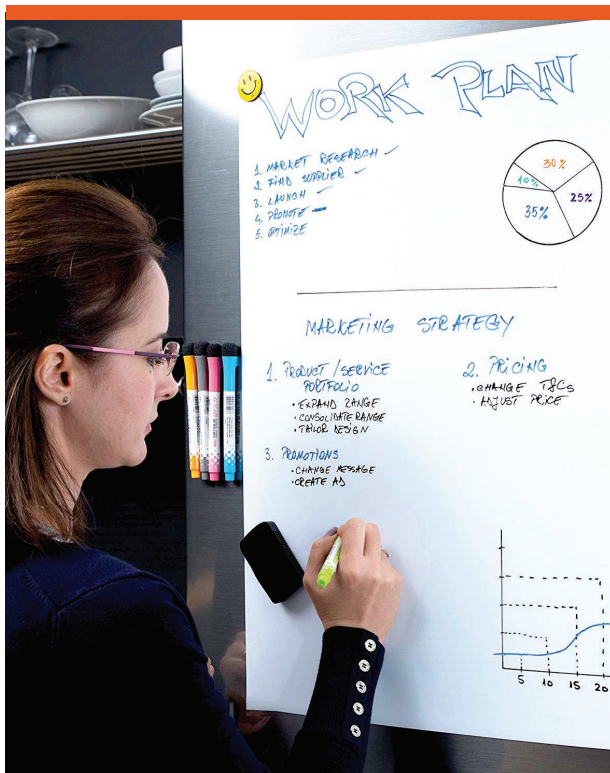 WORK PLAN
1. MARKET RESEARCH ✓
2. FIND SUPPLIER ✓
3. LAUNCH ✓
4. PROMOTE –
5. OPTIMIZE
30%
10%
25%
35%
MARKETING STRATEGY
1. PRODUCT / SERVICE
PORTFOLIO
• EXPAND RANGE
• CONSOLIDATE RANGE
• TAILOR DESIGN
2. PRICING
• CHANGE T&Cs
• ADJUST PRICE
3. PROMOTIONS
• CHANGE MESSAGE
• CREATE AD
5 10 15 20